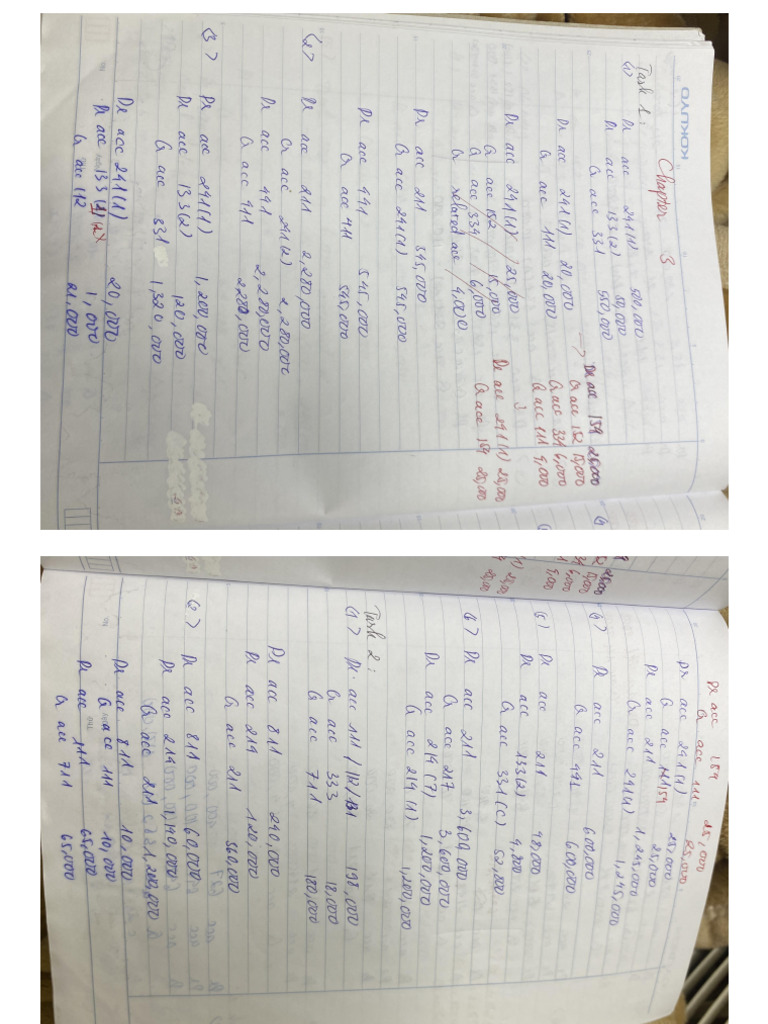 KOKUYO
Chapter 3
Task 1:
(1) Dr acc 241(1) 500,000
Dr acc 133(2) 50,000
Cr acc 331 550,000
Dr acc 241(1) 20,000
Cr acc 111 20,000
Dr acc 241(1) 25,000
Cr acc 152 15,000
Cr acc 334 6,000
Cr related acc 4,000
→ Dr acc 154 25,000
Cr acc 152 15,000
Cr acc 334 6,000
Cr acc 111 4,000
Dr acc 241(1) 25,000
Cr acc 154 25,000
Dr acc 211 545,000
Cr acc 241(1) 545,000
Dr acc 441 545,000
Cr acc 411 545,000
(2) Dr acc 211 2,280,000
Cr acc 241(2) 2,280,000
Dr acc 441 2,280,000
Cr acc 411 2,280,000
(3) Dr acc 241(1) 1,200,000
Dr acc 133(2) 120,000
Cr acc 331 1,320,000
Dr acc 241(1) 20,000
Dr acc 133 1,000
Cr acc 112 21,000
Dr acc 154 25,000
Cr acc 111 25,000
Dr acc 241(1) 25,000
Cr acc 154 25,000
Dr acc 211 1,245,000
Cr acc 241(1) 1,245,000
(4) Dr acc 211 600,000
Cr acc 441 600,000
(5) Dr acc 211 48,000
Dr acc 133(2) 4,800
Cr acc 331(C) 52,800
(6) Dr acc 211 3,600,000
Cr acc 217 3,600,000
Dr acc 214(7) 1,200,000
Cr acc 214(1) 1,200,000
Task 2:
(1) Dr acc 111/112/131 198,000
Cr acc 333 18,000
Cr acc 711 180,000
Dr acc 811 240,000
Dr acc 214 120,000
Cr acc 211 360,000
(2) Dr acc 811 60,000
Dr acc 214 1,140,000
Cr acc 211 1,200,000
Dr acc 811 10,000
Cr acc 111 10,000
Dr acc 111 65,000
Cr acc 711 65,000